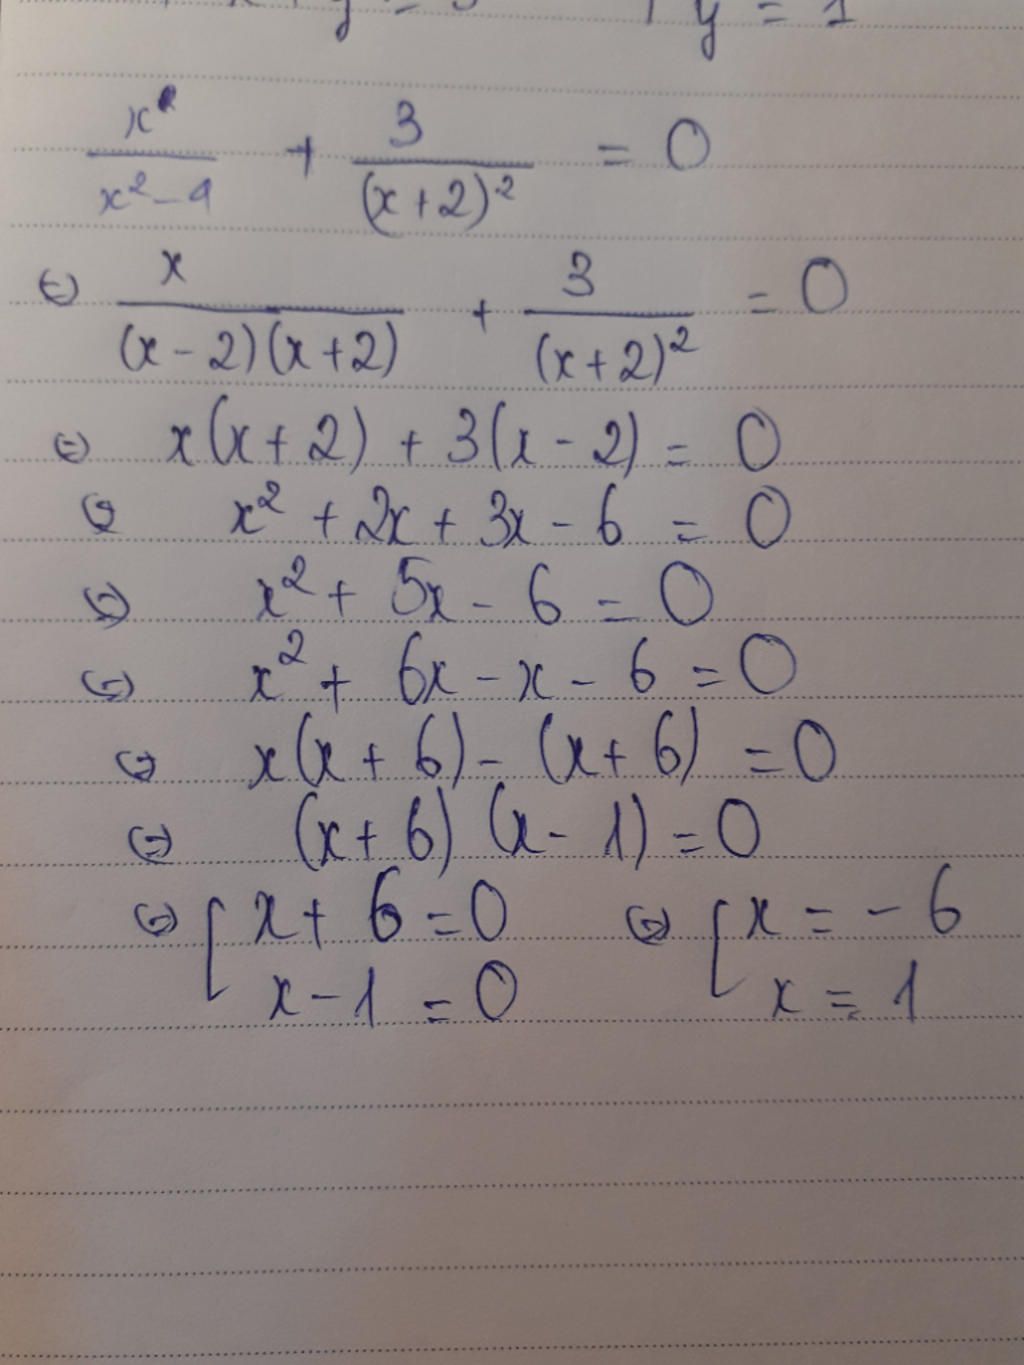 y = 1
x/(x² - 4) + 3/(x+2)² = 0
⇔ x/((x-2)(x+2)) + 3/(x+2)² = 0
⇔ x(x+2) + 3(x-2) = 0
⇔ x² + 2x + 3x - 6 = 0
⇔ x² + 5x - 6 = 0
⇔ x² + 6x - x - 6 = 0
⇔ x(x+6) - (x+6) = 0
⇔ (x+6) (x-1) = 0
⇔ [ x+6 = 0 ⇔ [ x = -6
x-1 = 0 x = 1